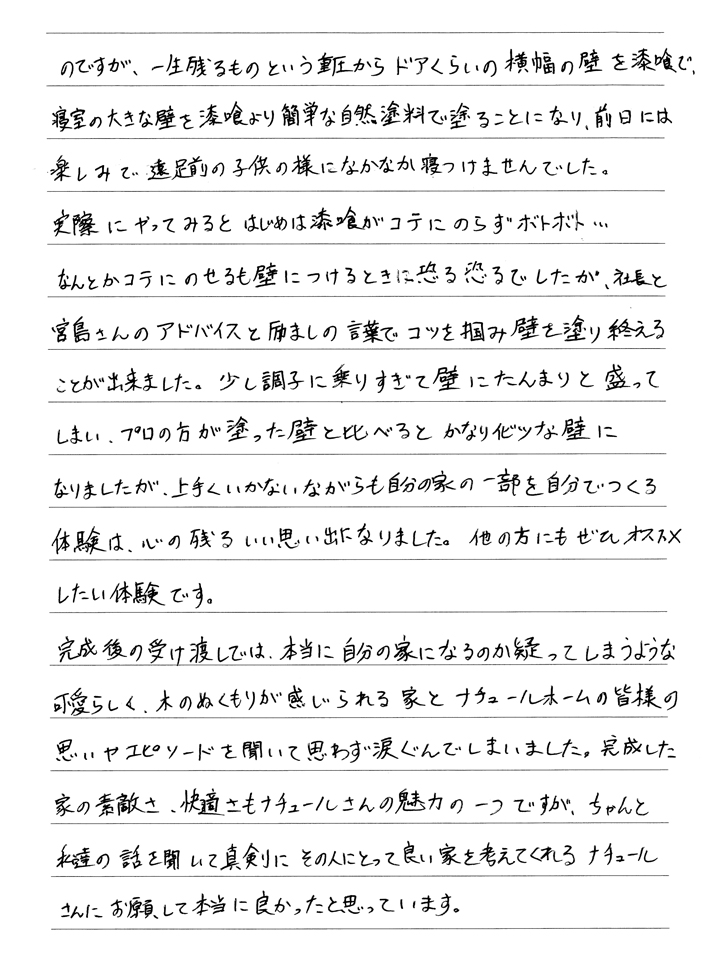 のですが、一生残るものという重圧からドアくらいの横幅の壁を漆喰で、
寝室の大きな壁を漆喰より簡単な自然塗料で塗ることになり、前日には
楽しみで遠足前の子供の様になかなか寝つけませんでした。
実際にやってみるとはじめは漆喰がコテにのらずボトボト…
なんとかコテにのせるも壁につけるときは恐る恐るでしたが、社長と
宮島さんのアドバイスと励ましの言葉でコツを掴み壁を塗り終える
ことが出来ました。少し調子に乗りすぎて壁にたんまりと盛って
しまい、プロの方が塗った壁と比べるとかなりイビツな壁に
なりましたが、上手くいかないながらも自分の家の一部を自分でつくる
体験は、心の残るいい思い出になりました。他の方にもぜひオススメ
したい体験です。
完成後の受け渡しでは、本当に自分の家になるのか疑ってしまうような
可愛らしく、木のぬくもりが感じられる家とナチュールホームの皆様の
思いやエピソードを聞いて思わず涙ぐんでしまいました。完成した
家の素敵さ、快適さもナチュールさんの魅力の一つですが、ちゃんと
私達の話を聞いて真剣にその人にとって良い家を考えてくれるナチュール
さんにお願して本当に良かったと思っています。